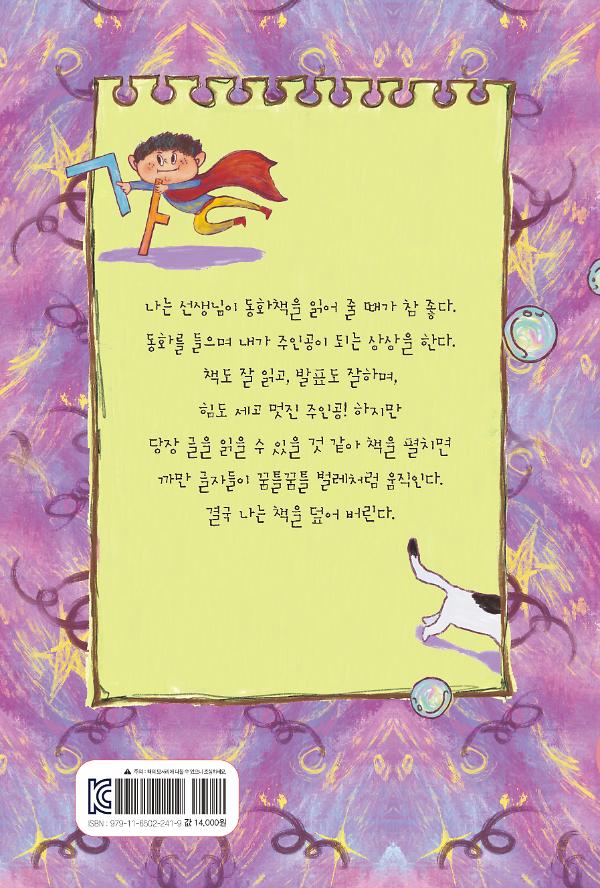 ㄱㅏ
나는 선생님이 동화책을 읽어 줄 때가 참 좋다.
동화를 들으며 내가 주인공이 되는 상상을 한다.
책도 잘 읽고, 발표도 잘하며,
힘도 세고 멋진 주인공! 하지만
당장 글을 읽을 수 있을 것 같아 책을 펼치면
까만 글자들이 꿈틀꿈틀 벌레처럼 움직인다.
결국 나는 책을 덮어 버린다.
주의 : 책의 모서리에 다칠 수 있으니 조심하세요.
ISBN : 979-11-6502-241-9 값 14,000원